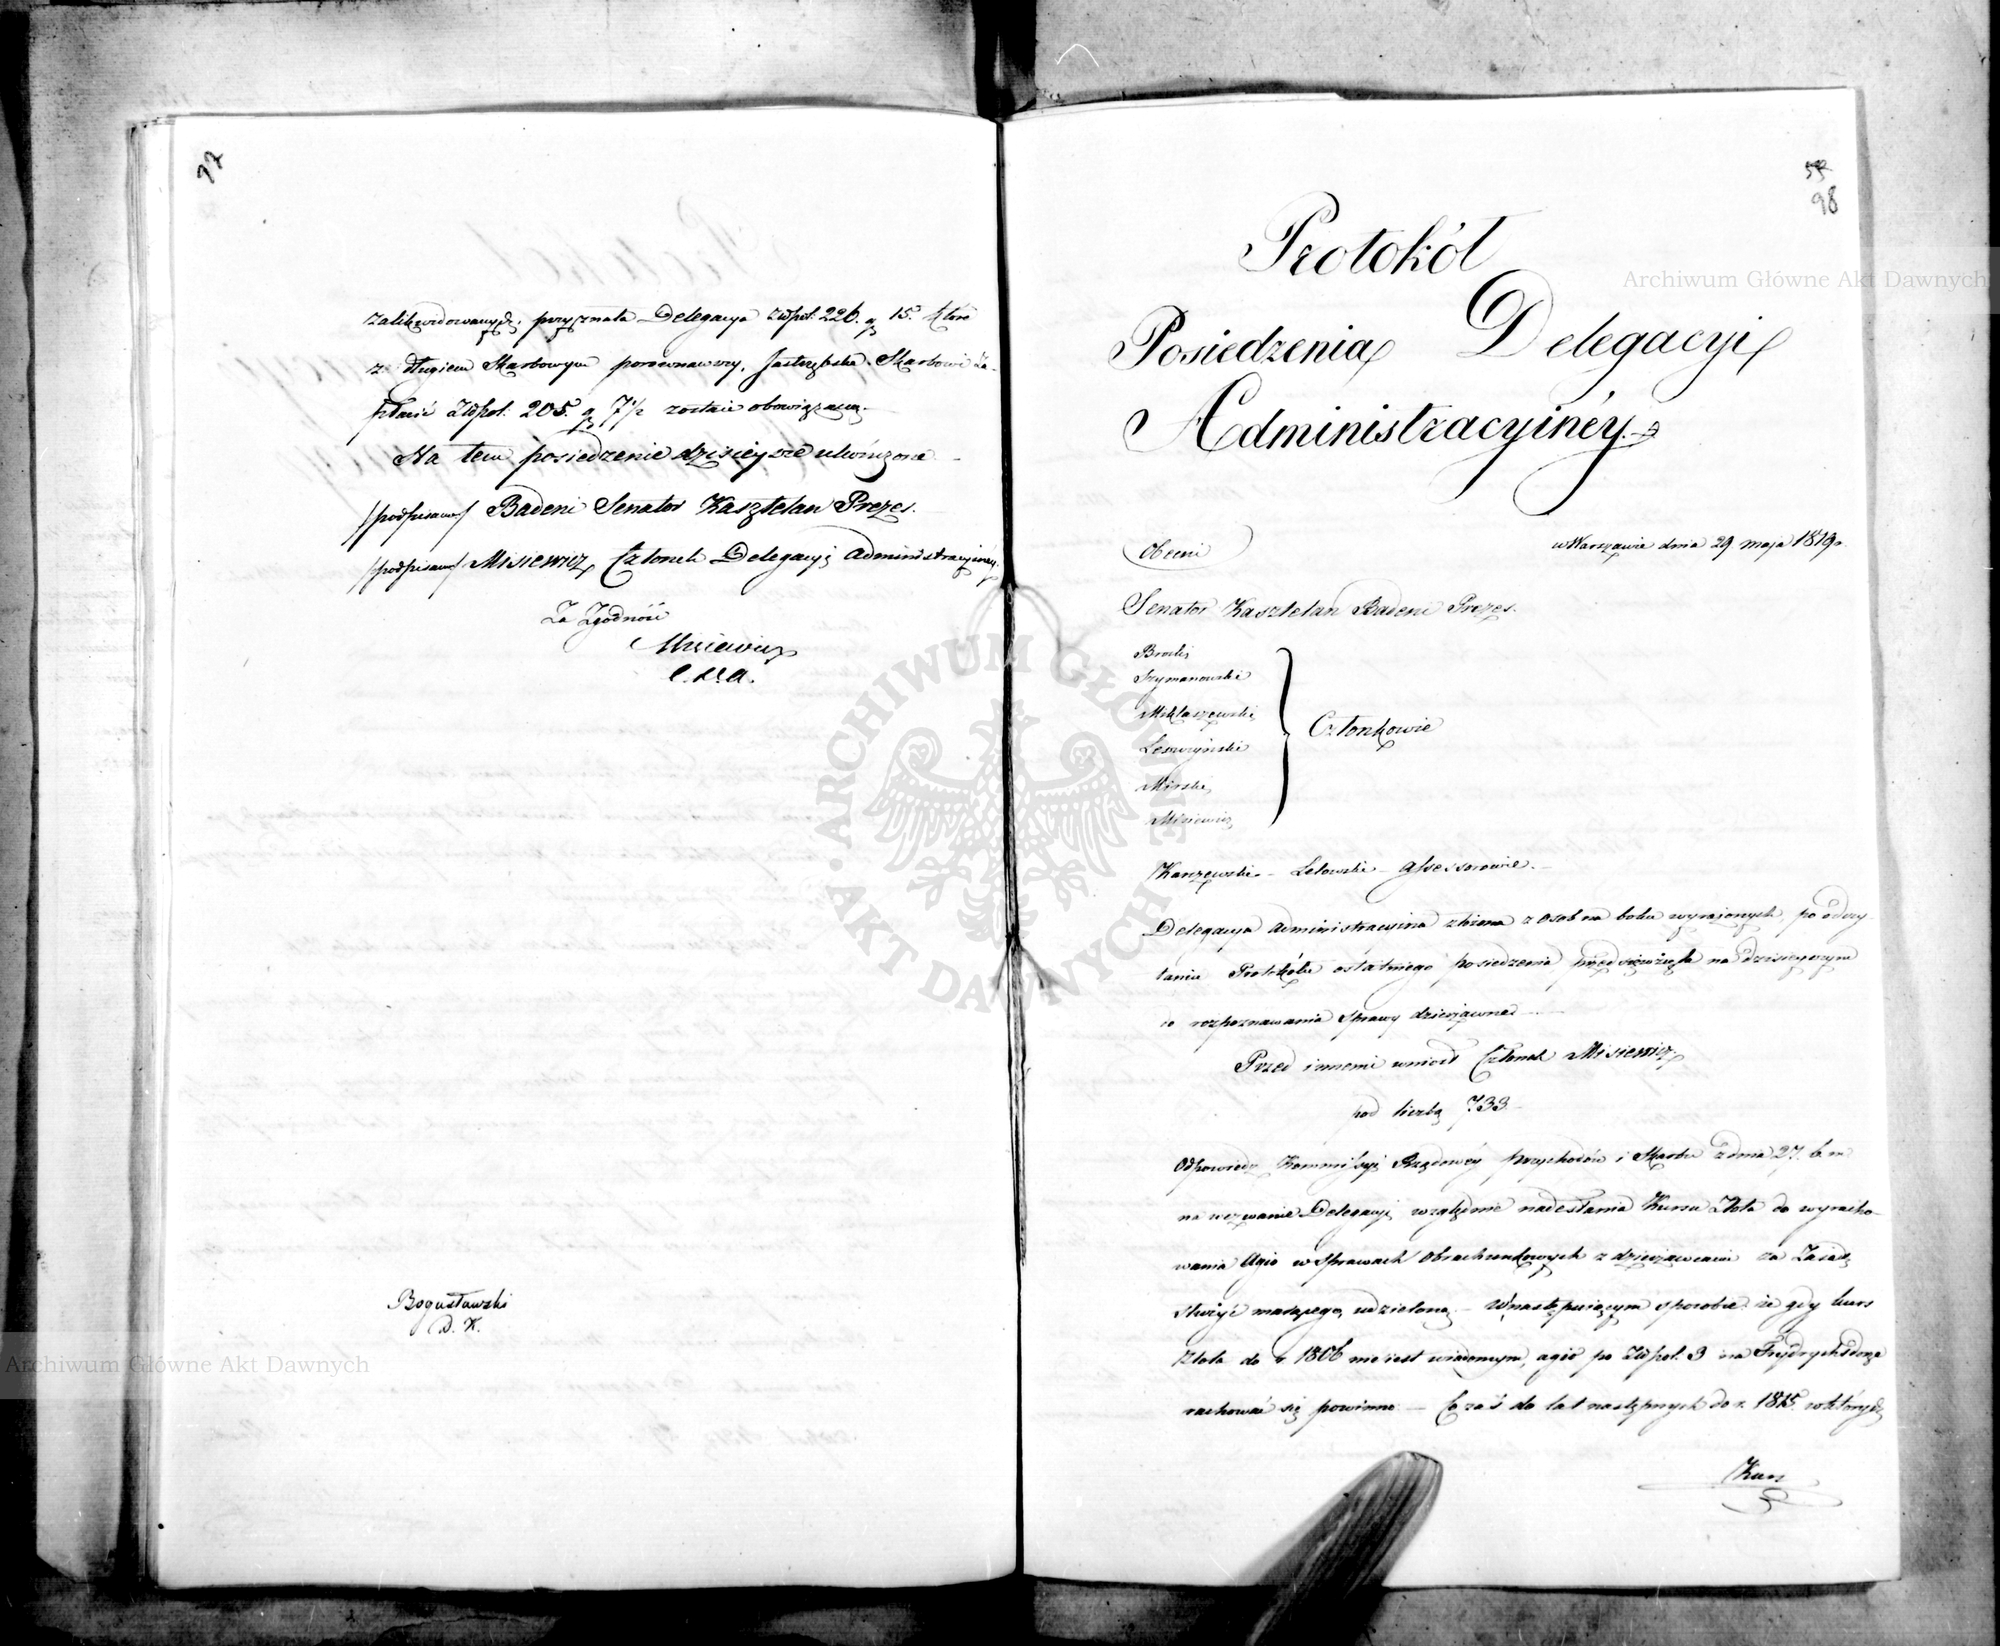 97
zalikwidowanych, przyznała Delegacya Złłpol: 226. g 15. które
z długiem Skarbowym porównawszy, Jastrzębska Skarbowi Za-
płacić Złłpol: 205. g 7½ zostaie obowiązaną.
Na tem posiedzenie dzisieysze ukończone
/podpisano/ Badeni Senator Kasztelan Prezes.
/podpisano/ Misiewicz Członek Delegacyi Administracyiney.
Za Zgodność
Misiewicz
C. D. A.
Bogusławski
D. K.
98
Protokół
Posiedzenia Delegacyi
Administracyinéy.
w Warszawie dnia 29 maja 1819 r.
Obecni
Senator Kasztelan Badeni Prezes.
Brocki
Szymanowski
Miklaszewski
Leszczyński
Mirski
Misiewicz
Członkowie
Karzewski – Letowski – Assessorowie. –
Delegacya Administracyina zbrana z osób na boku wyrażonych, po odczy
taniu Protokółu ostatniego posiedzenia przedsięwzięła na dzisieyszym
to rozpoznawania sprawy dzierżawne
Przed innemi wniosł Członek Misiewicz
pod liczbą 733
Odpowiedz Kommissyi Rządowéy przychodów i Skarbu z dnia 27. b. m
na wezwanie Delegacyi względnie nadesłania Kursu Złota do wyracho-
wania Agio w Sprawach Obrachunkowych z dzierżawcami za Zasadę
służyć maiącego, udzieloną – w następuiącym sposobie: że gdy kurs
Złota do r. 1806 nie iest wiadomym, agio po Złłpol. 3 na Frydrychsdorze
rachować się powinno – Co zaś do lat następnych do r. 1815. w których
Kurs
Archiwum Główne Akt Dawnych
Archiwum Główne Akt Dawnych
ARCHIWUM GŁÓWNE AKT DAWNYCH